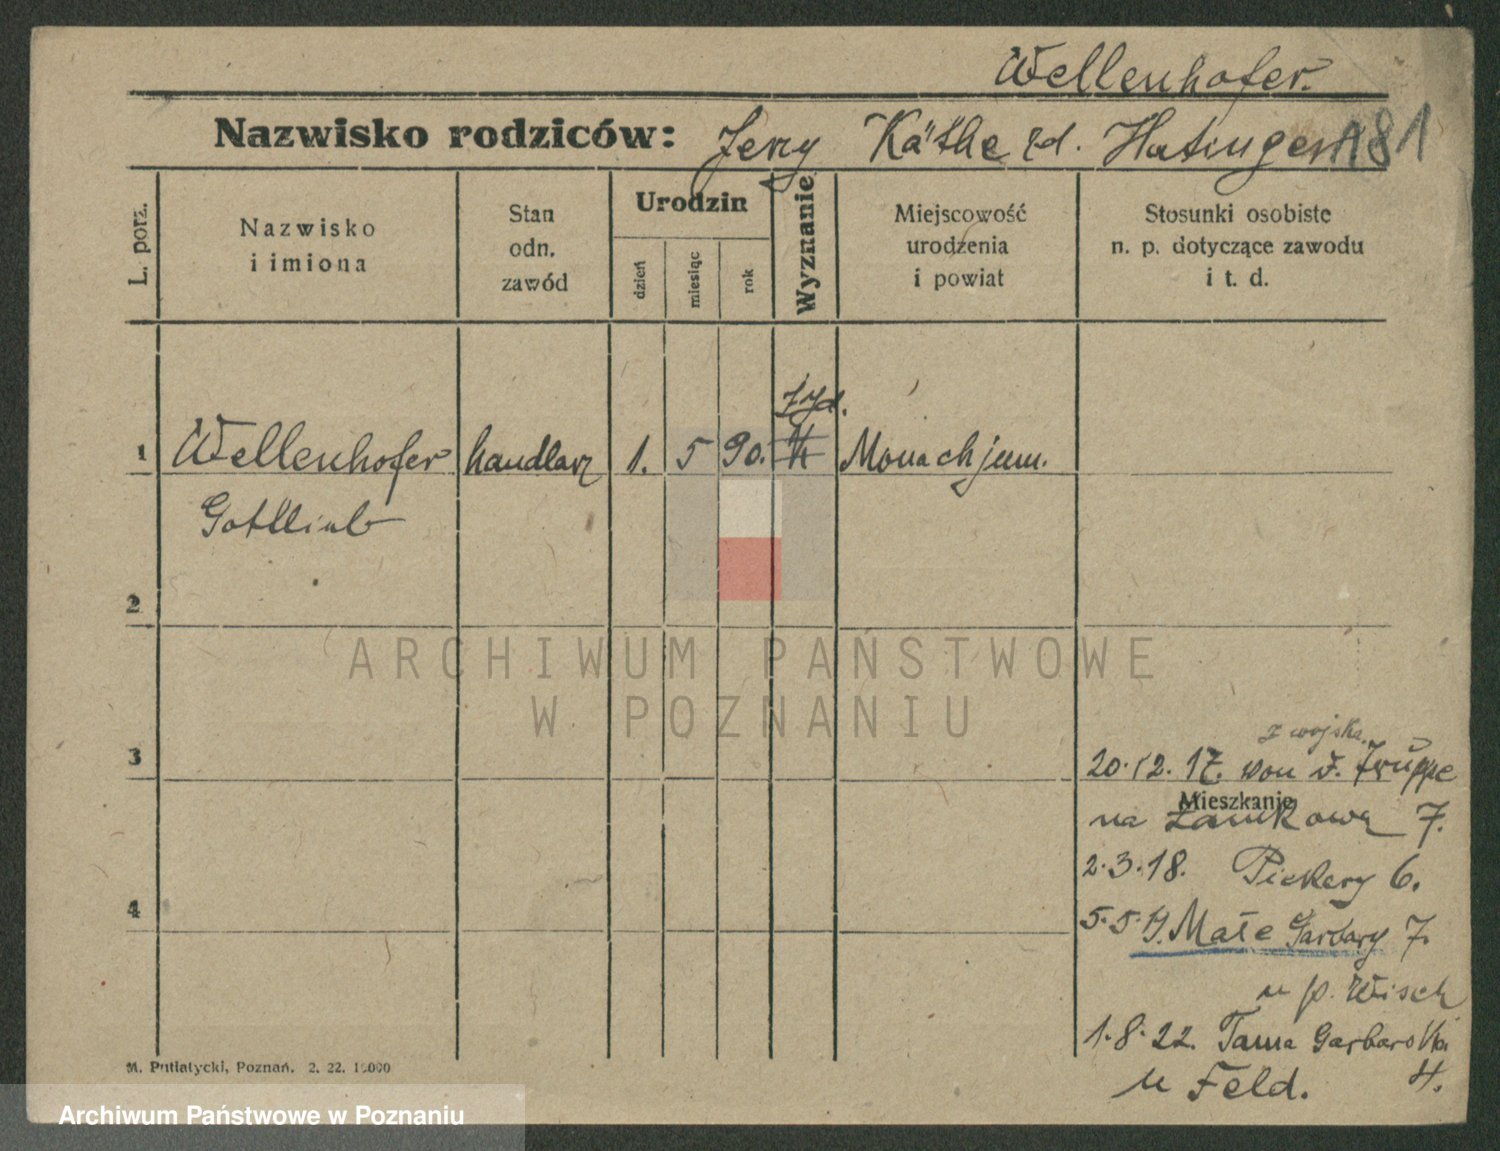 Wellenhofer.
Nazwisko rodziców: Jerzy Käthe zd. Hatinger 181
L. porz.
Nazwisko
i imiona
Stan
odn.
zawód
Urodzin
dzień
miesiąc
rok
Wyznanie
Miejscowość
urodzenia
i powiat
Stosunki osobiste
n. p. dotyczące zawodu
i t. d.
żyd.
1 Wellenhofer handlarz 1. 5 90. Monachjum.
Gottlieb
2
ARCHIWUM PAŃSTWOWE
W POZNANIU
3
z wojska.
20.12.17. von d. Truppe
Mieszkanie
na Zamkową 7.
2.3.18. Piekary 6.
4
5.5.19. Małe Garbary 7.
u p. Wisch
1.8.22. Tama Garbarska
4.
u Feld.
M. Putiatycki, Poznań. 2. 22. 10000
Archiwum Państwowe w Poznaniu